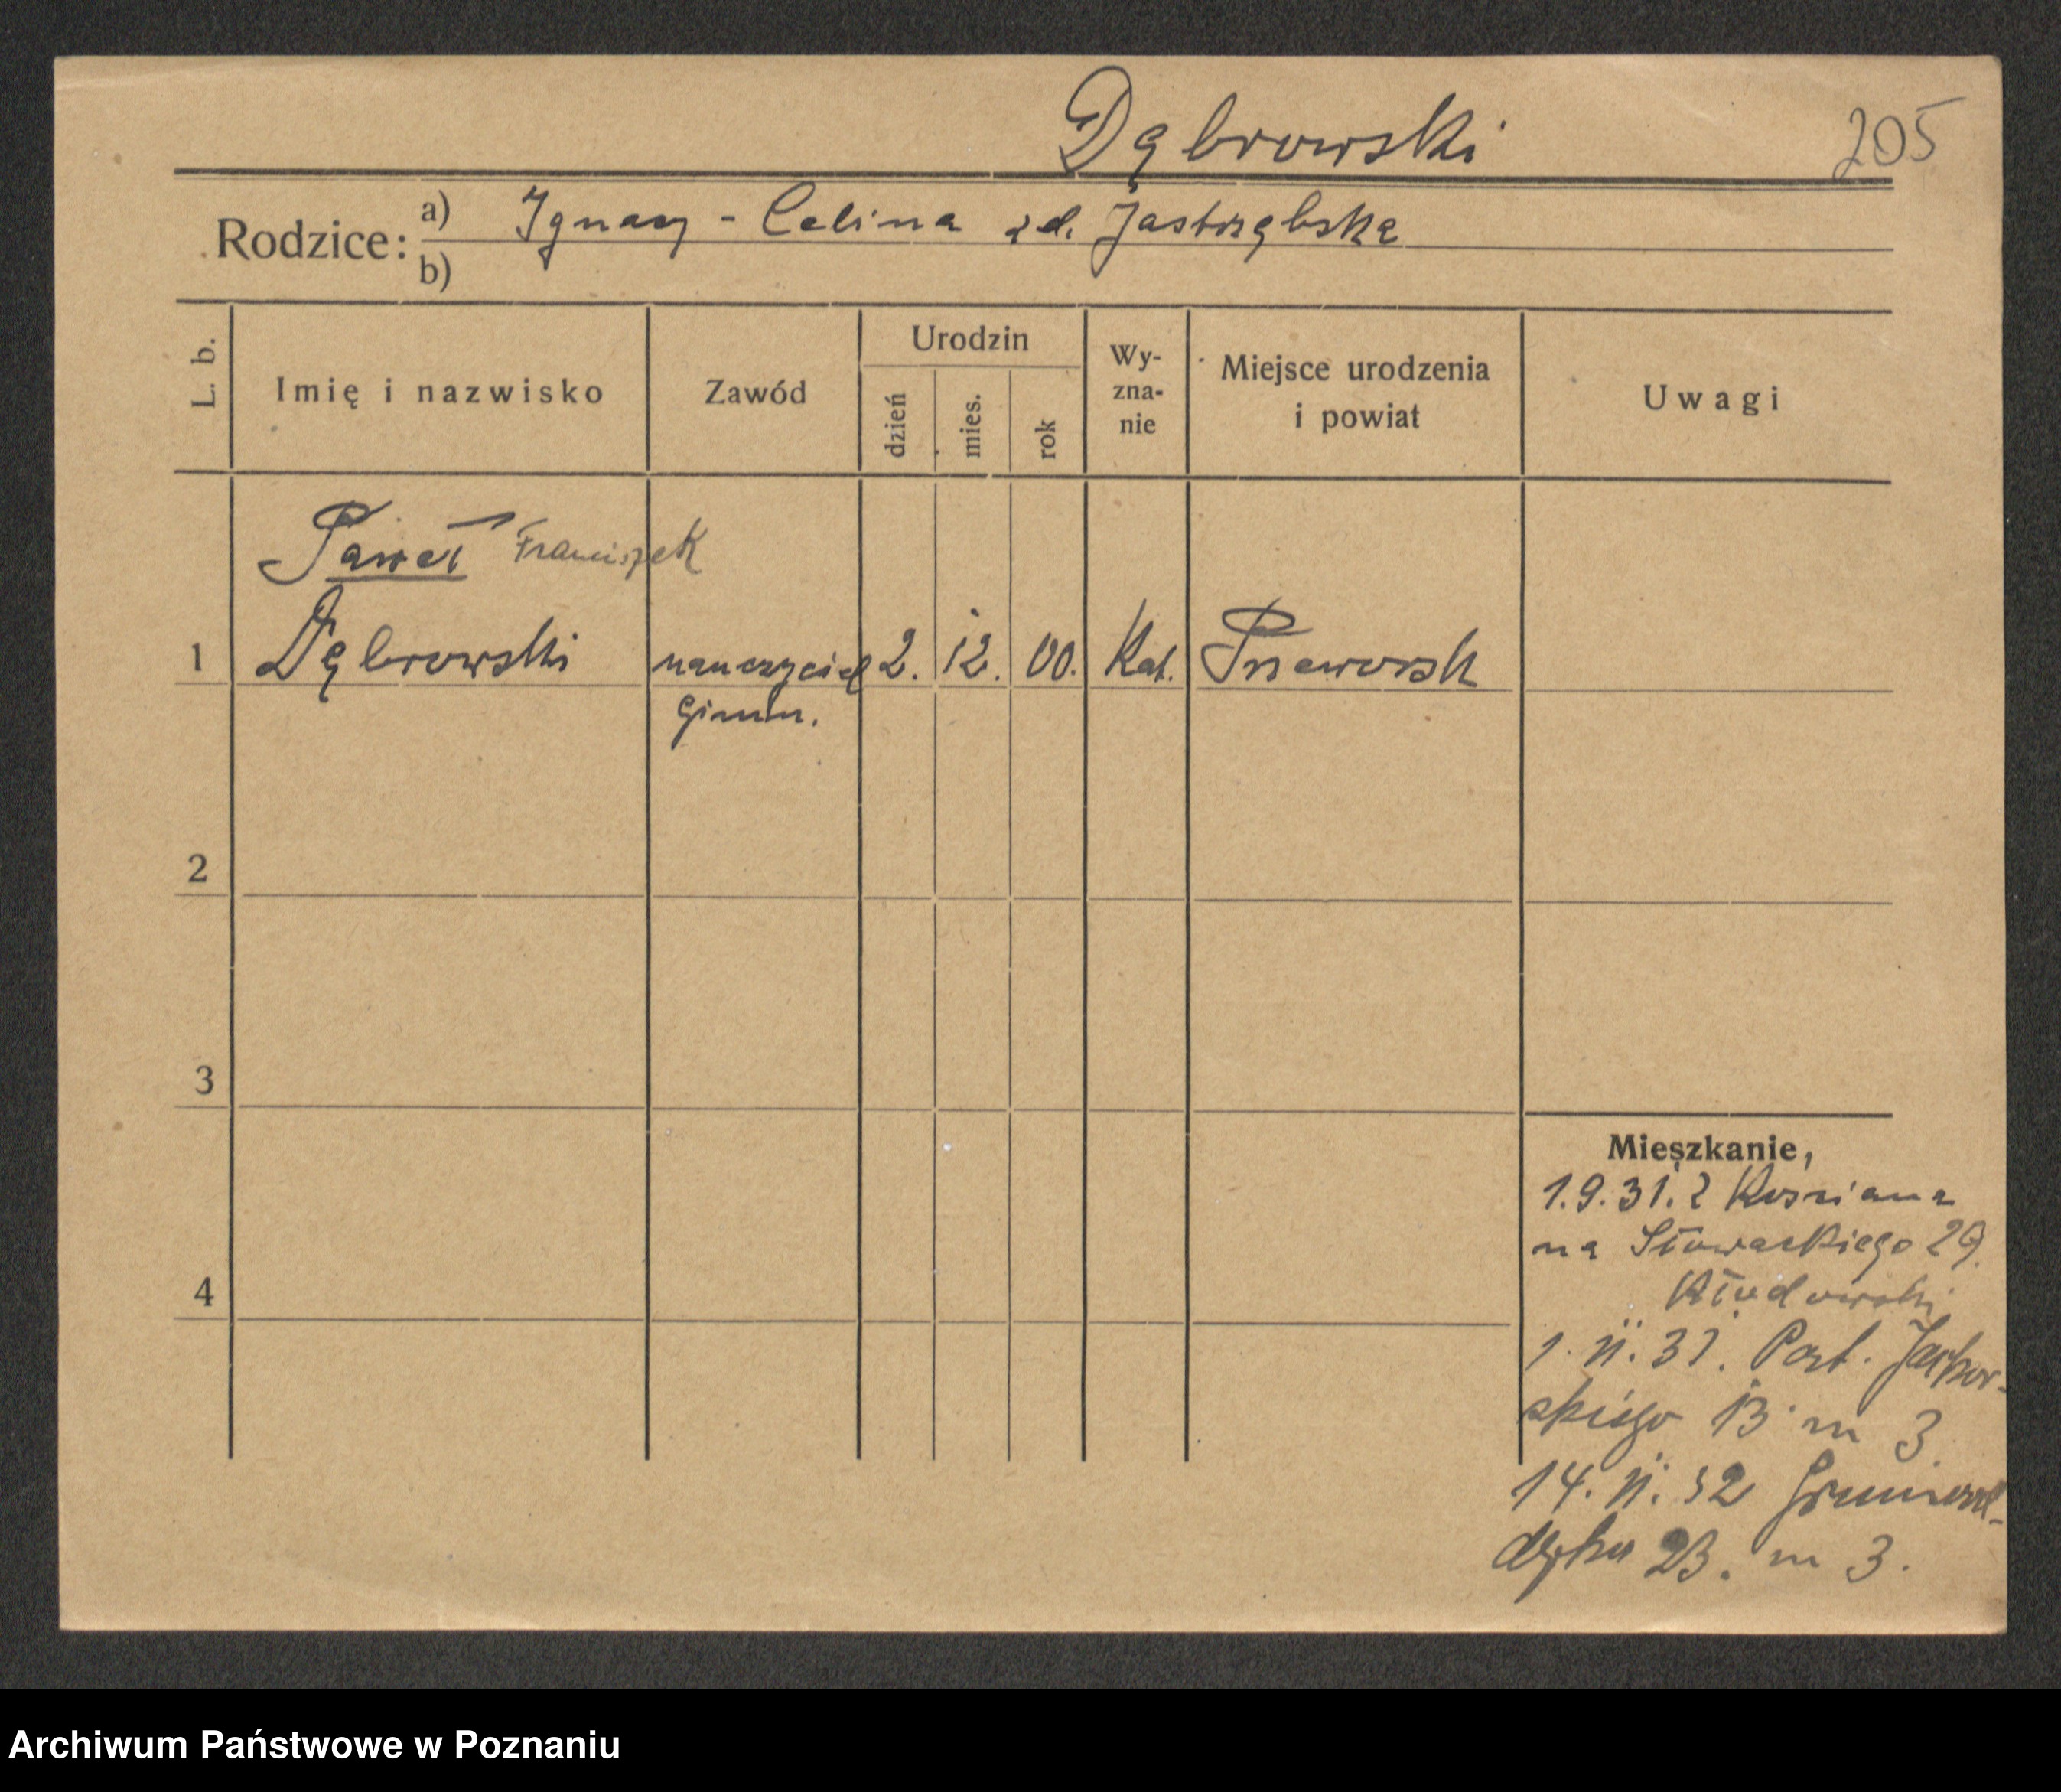 Dąbrowski
205
Rodzice:
a) Ignacy - Celina zd. Jastrzębska
b)
L. b.
Imię i nazwisko
Zawód
Urodzin
dzień
mies.
rok
Wy-
zna-
nie
Miejsce urodzenia
i powiat
Uwagi
Paweł Franciszek
1 Dąbrowski nauczyciel 2. 12. 00. Kat. Przeworsk
gimn.
2
3
4
Mieszkanie,
1.9.31. z Kościana
na Słowackiego 29.
1. 11. 31. Jackow-
skiego 13 m 3
14. 11. 32 Grunwal-
dzka 23. m 3.
Archiwum Państwowe w Poznaniu